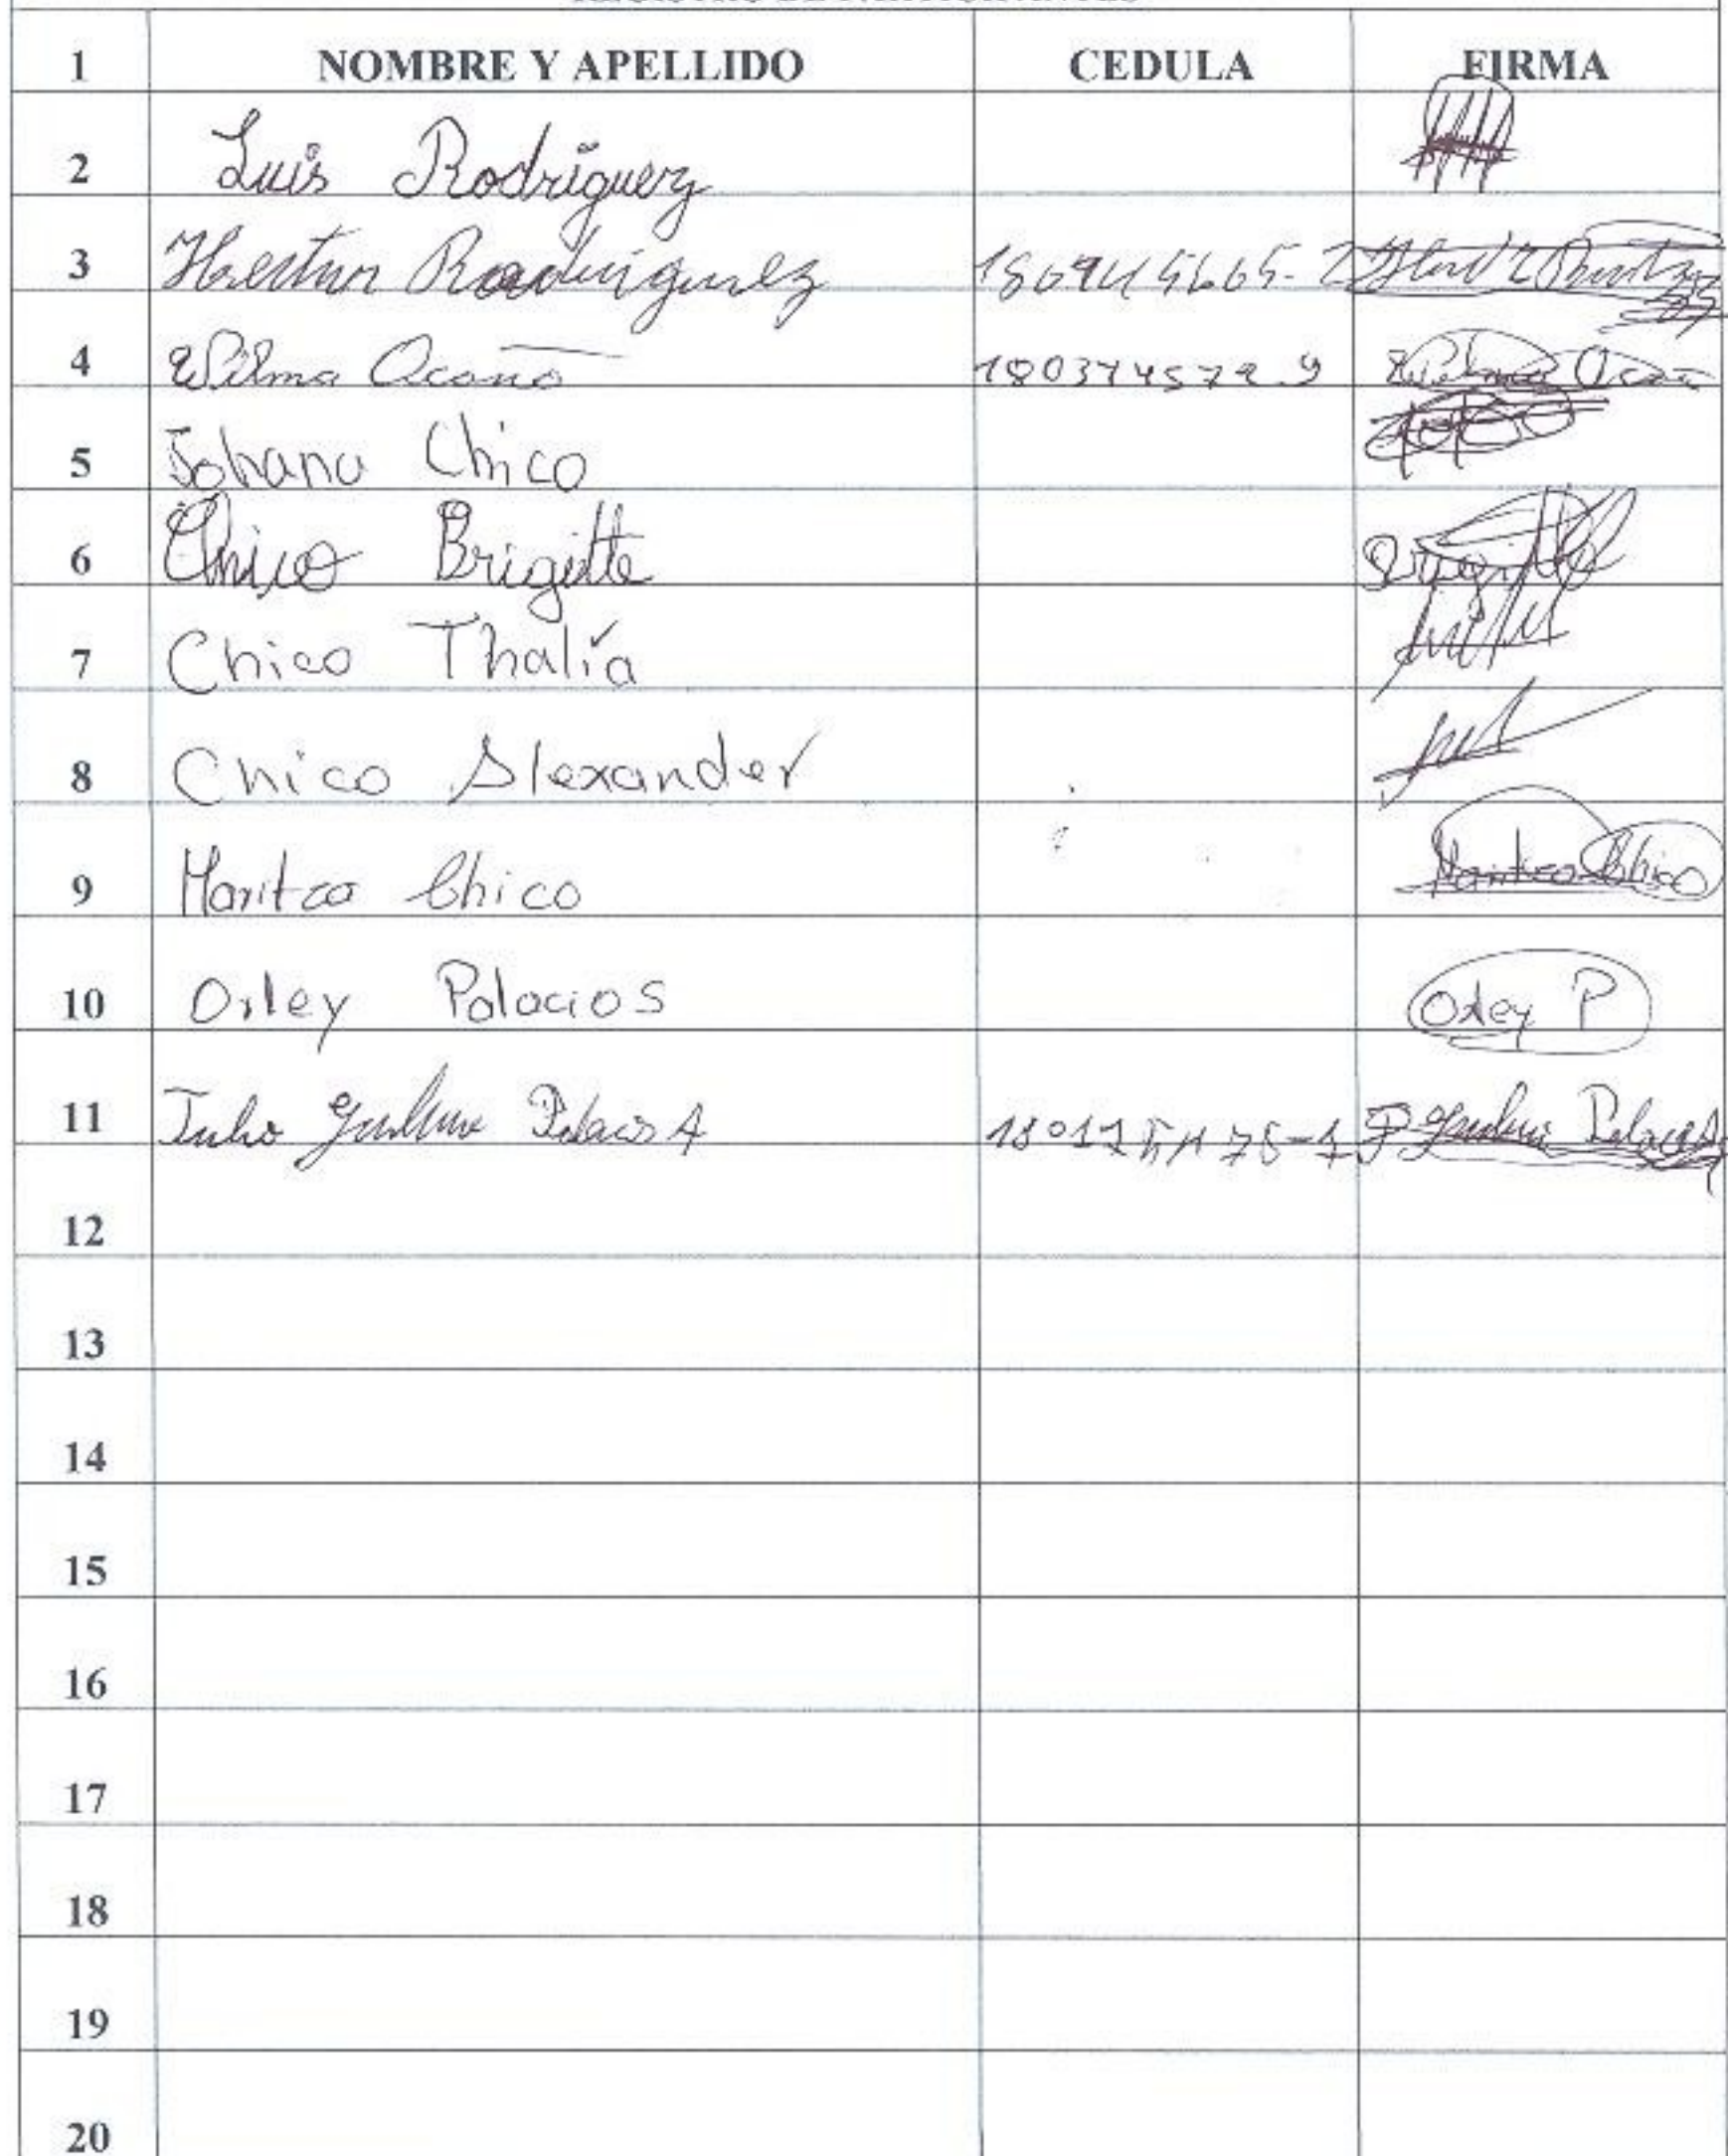 1 NOMBRE Y APELLIDO CEDULA FIRMA
2 Luis Rodríguez
3 Rodriguez
4 Wilma Ocaña 180374572 9 Wilma Ocaña
5 Johana Chico
6 Chico Brigitte
7 Chico Thalía
8 Chico Alexander
9 Maritza Chico Maritza Chico
10 Orley Palacios Orley P
11 Julio Palacios A
12
13
14
15
16
17
18
19
20